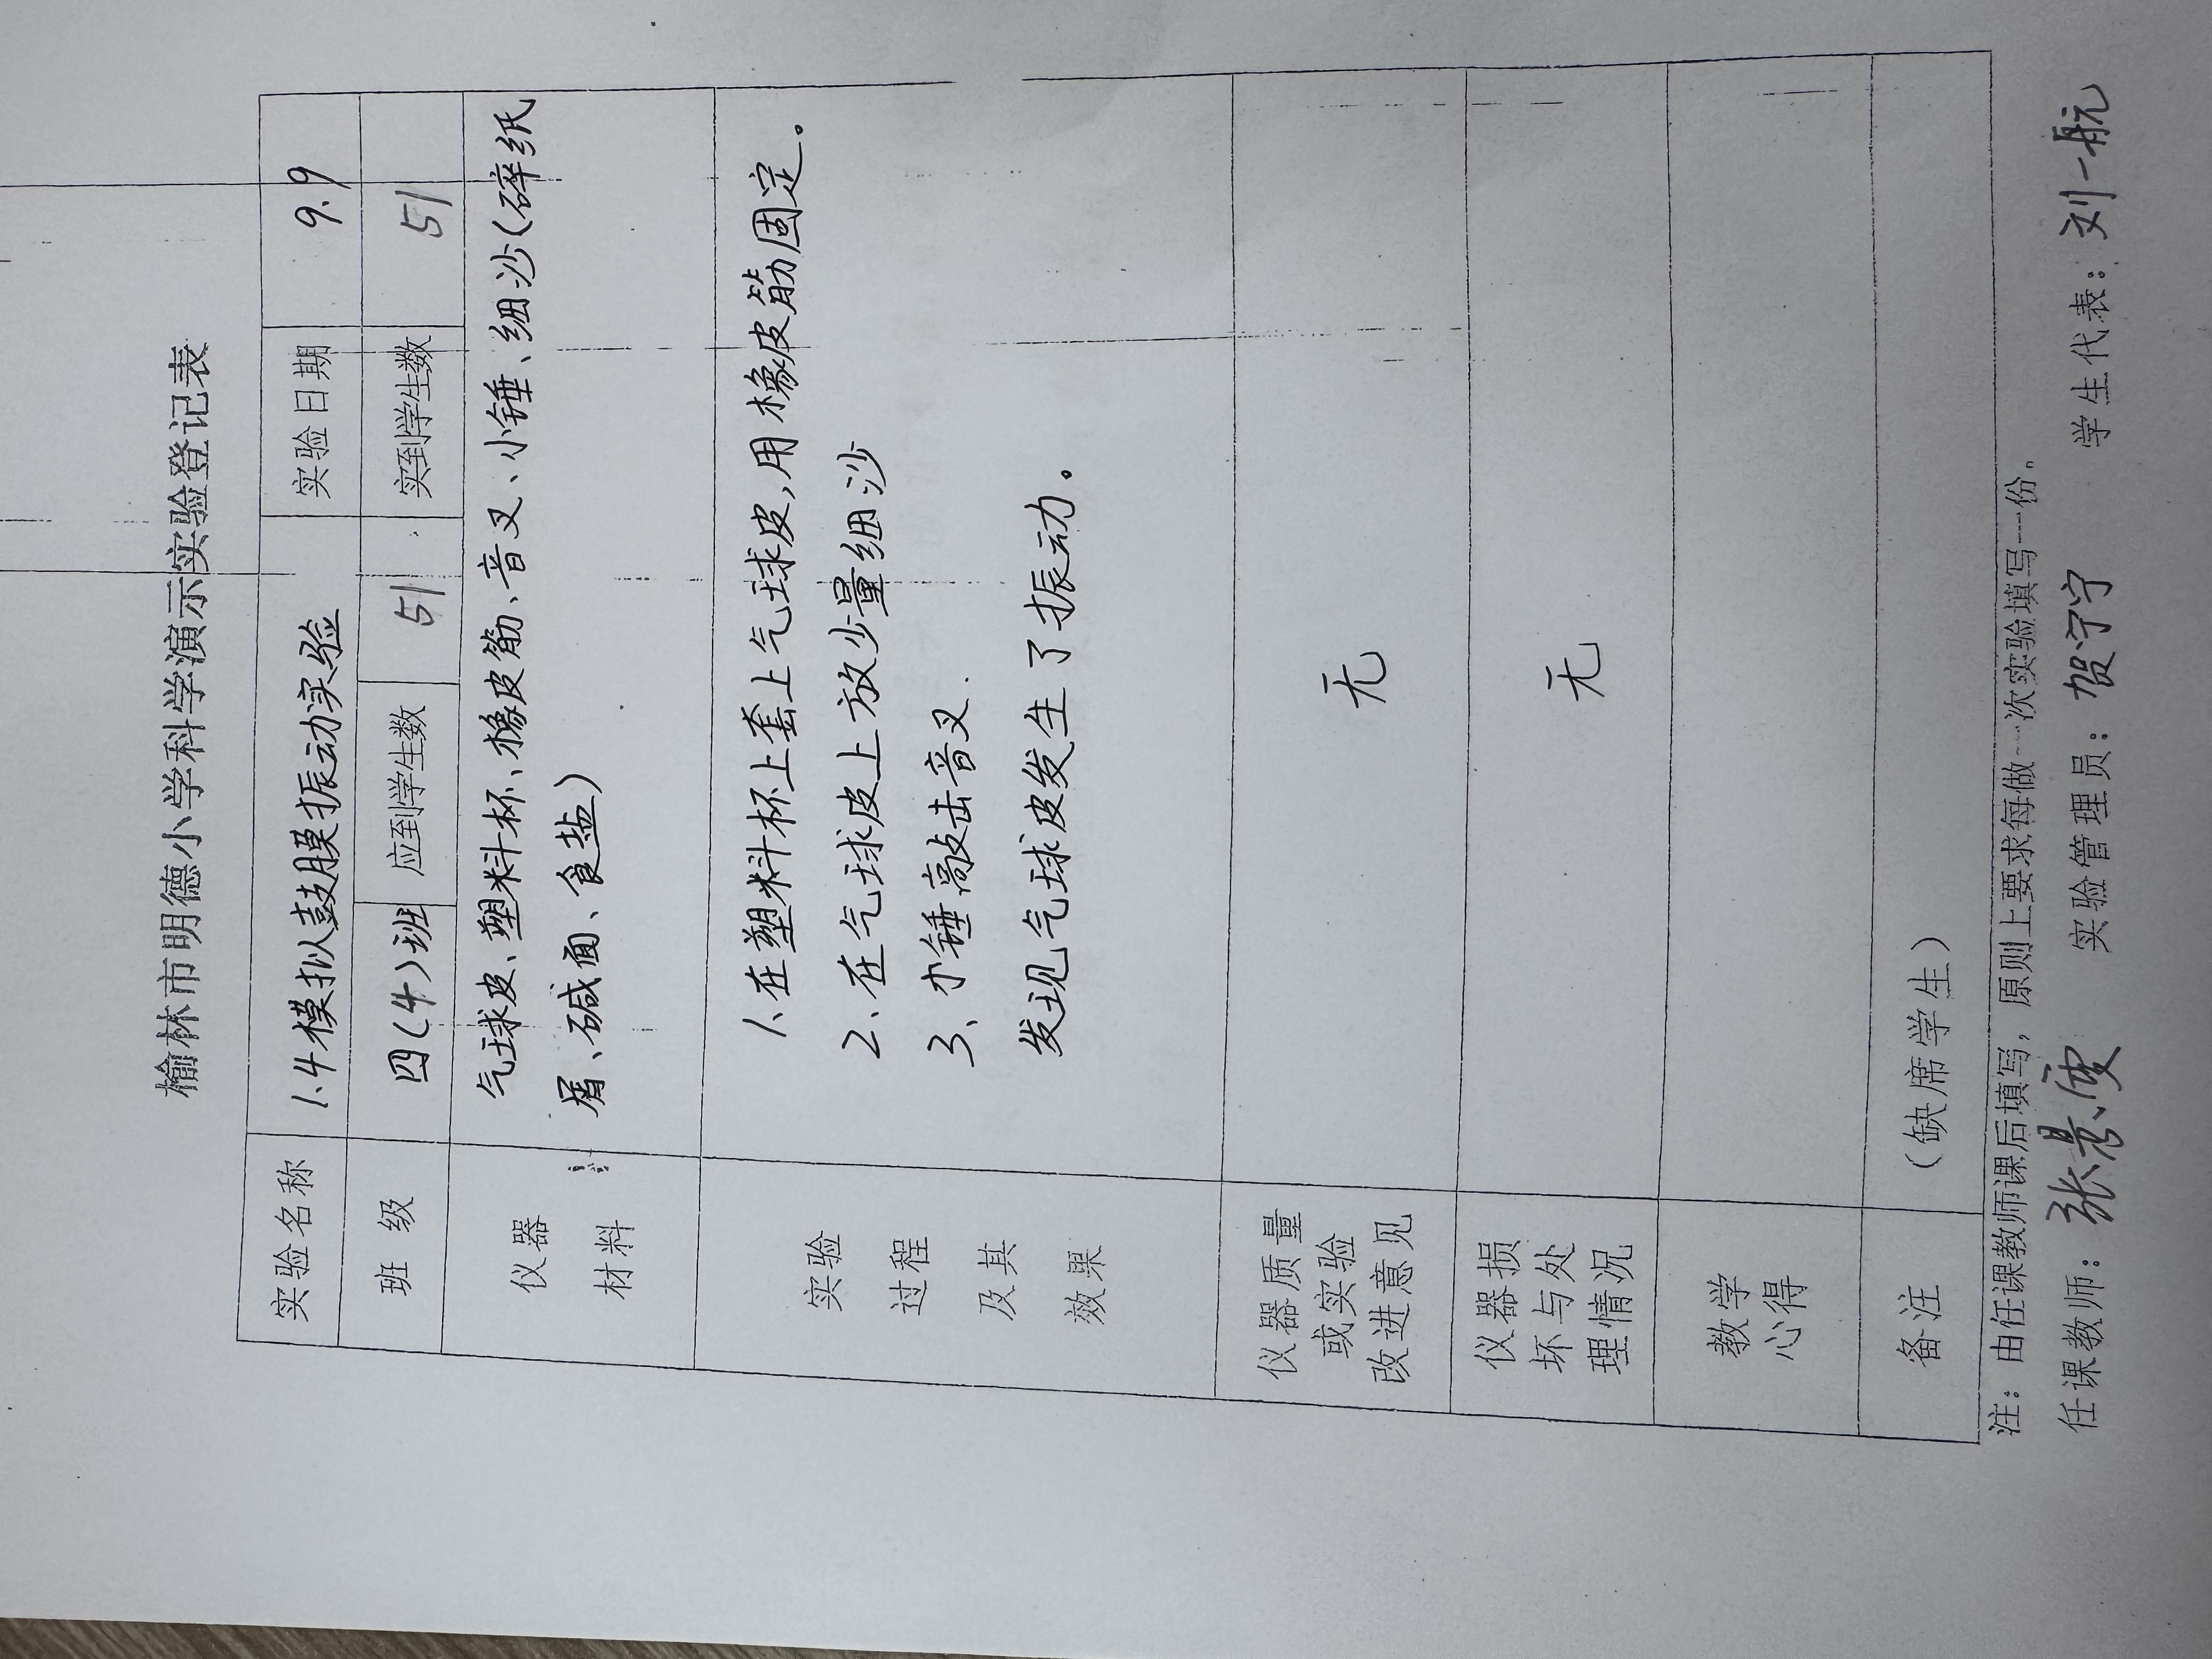 榆林市明德小学科学演示实验登记表
实验名称 1.4模拟鼓膜振动实验 实验日期 9.9
班 级 四(4)班 应到学生数 51 实到学生数 51
仪器
材料
气球皮、塑料杯、橡皮筋、音叉、小锤、细沙(碎纸
屑、碱面、食盐)
实验
过程
及其
效果
1.在塑料杯上套上气球皮,用橡皮筋固定。
2.在气球皮上放少量细沙
3、小锤敲击音叉.
发现气球皮发生了振动。
仪器质量
或实验
改进意见
无
仪器损
坏与处
理情况
无
教学
心得
备注 (缺席学生)
注:由任课教师课后填写,原则上要求每做一次实验填写一份。
任课教师:张 实验管理员:贺宁宁 学生代表:刘一航